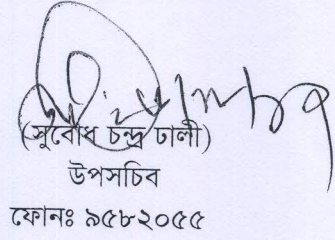 (সুবোধ চন্দ্র ঢালী)
উপসচিব
ফোনঃ ৯৫৮২০৫৫